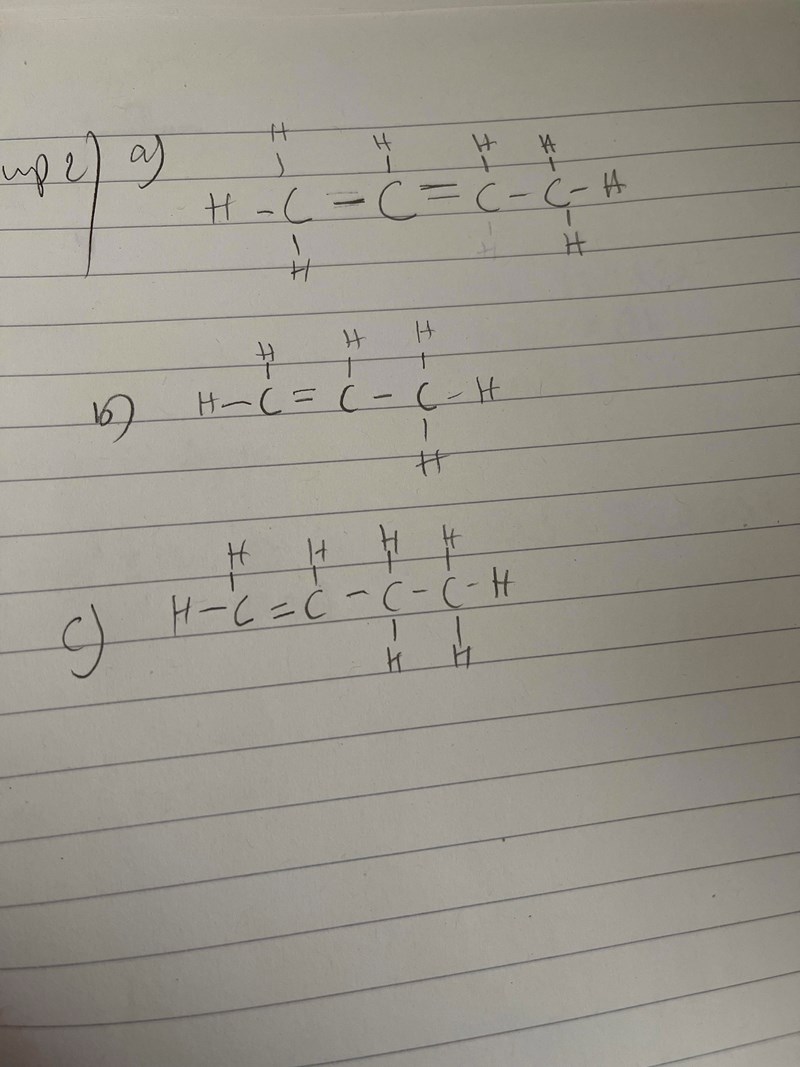 a)
H H H H
H - C - C = C - C - H
H H
b)
H H H
H - C = C - C - H
H
c)
H H H H
H - C = C - C - C - H
H H